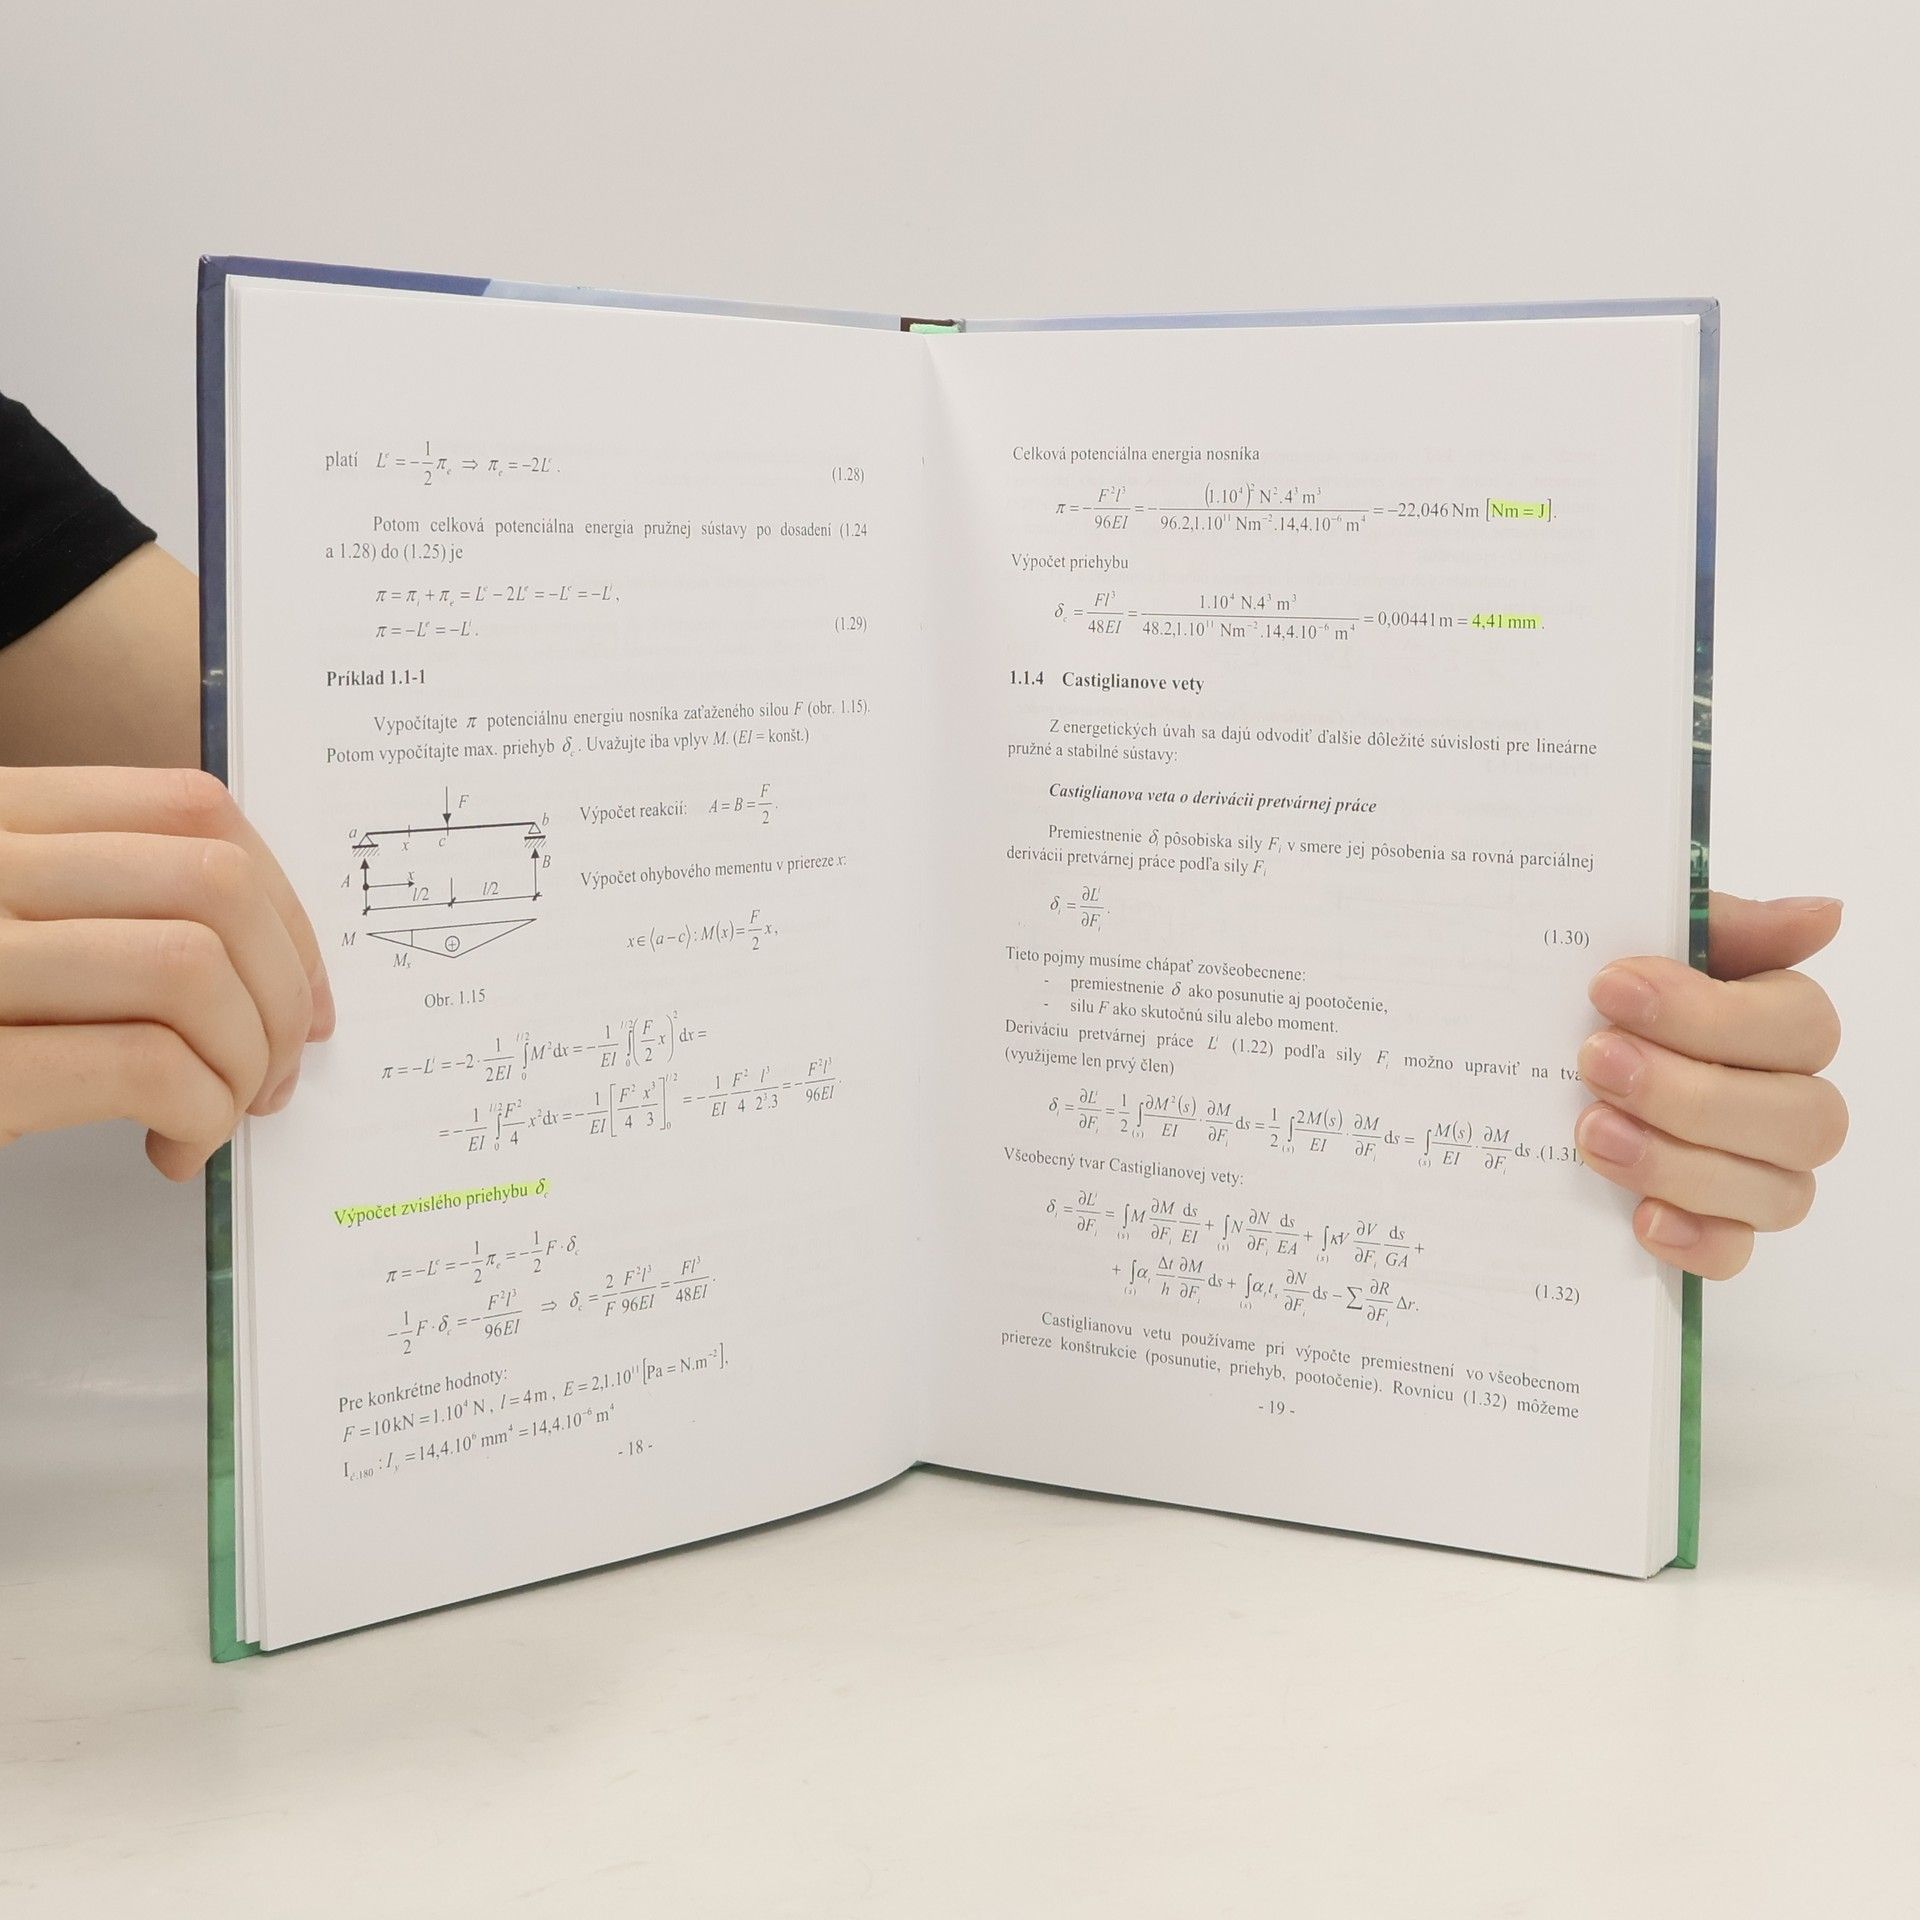 platí Lᵉ = −1/2 πₑ ⇒ πₑ = −2Lᵉ . (1.28)
Potom celková potenciálna energia pružnej sústavy po dosadení (1.24
a 1.28) do (1.25) je
π = πᵢ + πₑ = Lᵉ − 2Lᵉ = −Lᵉ = −Lⁱ ,
π = −Lᵉ = −Lⁱ . (1.29)
Príklad 1.1-1
Vypočítajte π potenciálnu energiu nosníka zaťaženého silou F (obr. 1.15).
Potom vypočítajte max. priehyb δ_c . Uvažujte iba vplyv M. (EI = konšt.)
F
a x c b
A x B
l/2 l/2
M ⊕
Mₓ
Obr. 1.15
Výpočet reakcií: A = B = F/2 .
Výpočet ohybového mementu v priereze x:
x ∈ ⟨a − c⟩ : M(x) = F/2 x ,
π = −Lⁱ = −2 · 1/2EI ∫₀^{l/2} M²dx = −1/EI ∫₀^{l/2} (F/2 x)² dx =
= −1/EI ∫₀^{l/2} F²/4 x²dx = −1/EI [F²/4 x³/3]₀^{l/2} = −1/EI F²/4 l³/2³.3 = −F²l³/96EI .
Výpočet zvislého priehybu δ_c
π = −Lᵉ = −1/2 πₑ = −1/2 F · δ_c
−1/2 F · δ_c = −F²l³/96EI ⇒ δ_c = 2/F F²l³/96EI = Fl³/48EI .
Pre konkrétne hodnoty:
F = 10 kN = 1.10⁴ N , l = 4 m , E = 2,1.10¹¹ [Pa = N.m⁻²],
I_{č.180} : I_y = 14,4.10⁶ mm⁴ = 14,4.10⁻⁶ m⁴
- 18 -
Celková potenciálna energia nosníka
π = −F²l³/96EI = −(1.10⁴)² N².4³ m³/96.2,1.10¹¹ Nm⁻².14,4.10⁻⁶ m⁴ = −22,046 Nm [Nm = J].
Výpočet priehybu
δ_c = Fl³/48EI = 1.10⁴ N.4³ m³/48.2,1.10¹¹ Nm⁻².14,4.10⁻⁶ m⁴ = 0,00441 m = 4,41 mm .
1.1.4 Castiglianove vety
Z energetických úvah sa dajú odvodiť ďalšie dôležité súvislosti pre lineárne
pružné a stabilné sústavy:
Castiglianova veta o derivácii pretvárnej práce
Premiestnenie δᵢ pôsobiska sily Fᵢ v smere jej pôsobenia sa rovná parciálnej
derivácii pretvárnej práce podľa sily Fᵢ
δᵢ = ∂Lⁱ/∂Fᵢ . (1.30)
Tieto pojmy musíme chápať zovšeobecnene:
- premiestnenie δ ako posunutie aj pootočenie,
- silu F ako skutočnú silu alebo moment.
Deriváciu pretvárnej práce Lⁱ (1.22) podľa sily Fᵢ možno upraviť na tva
(využijeme len prvý člen)
δᵢ = ∂Lⁱ/∂Fᵢ = 1/2 ∫₍ₛ₎ ∂M²(s)/EI · ∂M/∂Fᵢ ds = 1/2 ∫₍ₛ₎ 2M(s)/EI · ∂M/∂Fᵢ ds = ∫₍ₛ₎ M(s)/EI · ∂M/∂Fᵢ ds .(1.31)
Všeobecný tvar Castiglianovej vety:
δᵢ = ∂Lⁱ/∂Fᵢ = ∫₍ₛ₎ M ∂M/∂Fᵢ ds/EI + ∫₍ₛ₎ N ∂N/∂Fᵢ ds/EA + ∫₍ₛ₎ κV ∂V/∂Fᵢ ds/GA +
+ ∫₍ₛ₎ αₜ Δt/h ∂M/∂Fᵢ ds + ∫₍ₛ₎ αₜ tₛ ∂N/∂Fᵢ ds − ∑ ∂R/∂Fᵢ Δr. (1.32)
Castiglianovu vetu používame pri výpočte premiestnení vo všeobecnom
priereze konštrukcie (posunutie, priehyb, pootočenie). Rovnicu (1.32) môžeme
- 19 -